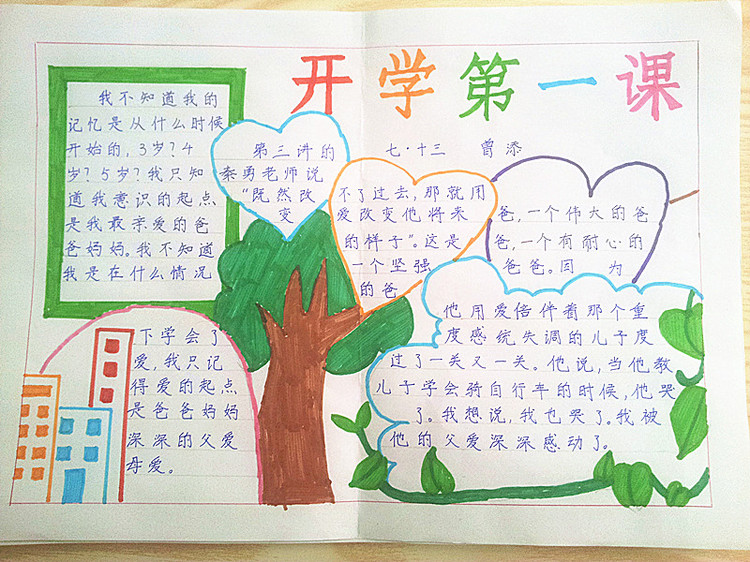 开学第一课
七·十三 曾添
我不知道我的
记忆是从什么时候
开始的,3岁?4
岁?5岁?我只知
道我意识的起点
是我最亲爱的爸
爸妈妈。我不知道
我是在什么情况
下学会了
爱,我只记
得爱的起点
是爸爸妈妈
深深的父爱
母爱。
第三讲的
秦勇老师说
“既然改
变
不了过去,那就用
爱改变他将来
的样子”。这是
一个坚强
的爸
爸,一个伟大的爸
爸,一个有耐心的
爸爸。因为
他用爱倍伴着那个重
度感统失调的儿子度
过了一关又一关。他说,当他教
儿子学会骑自行车的时候,他哭
了。我想说,我也哭了。我被
他的父爱深深感动了。